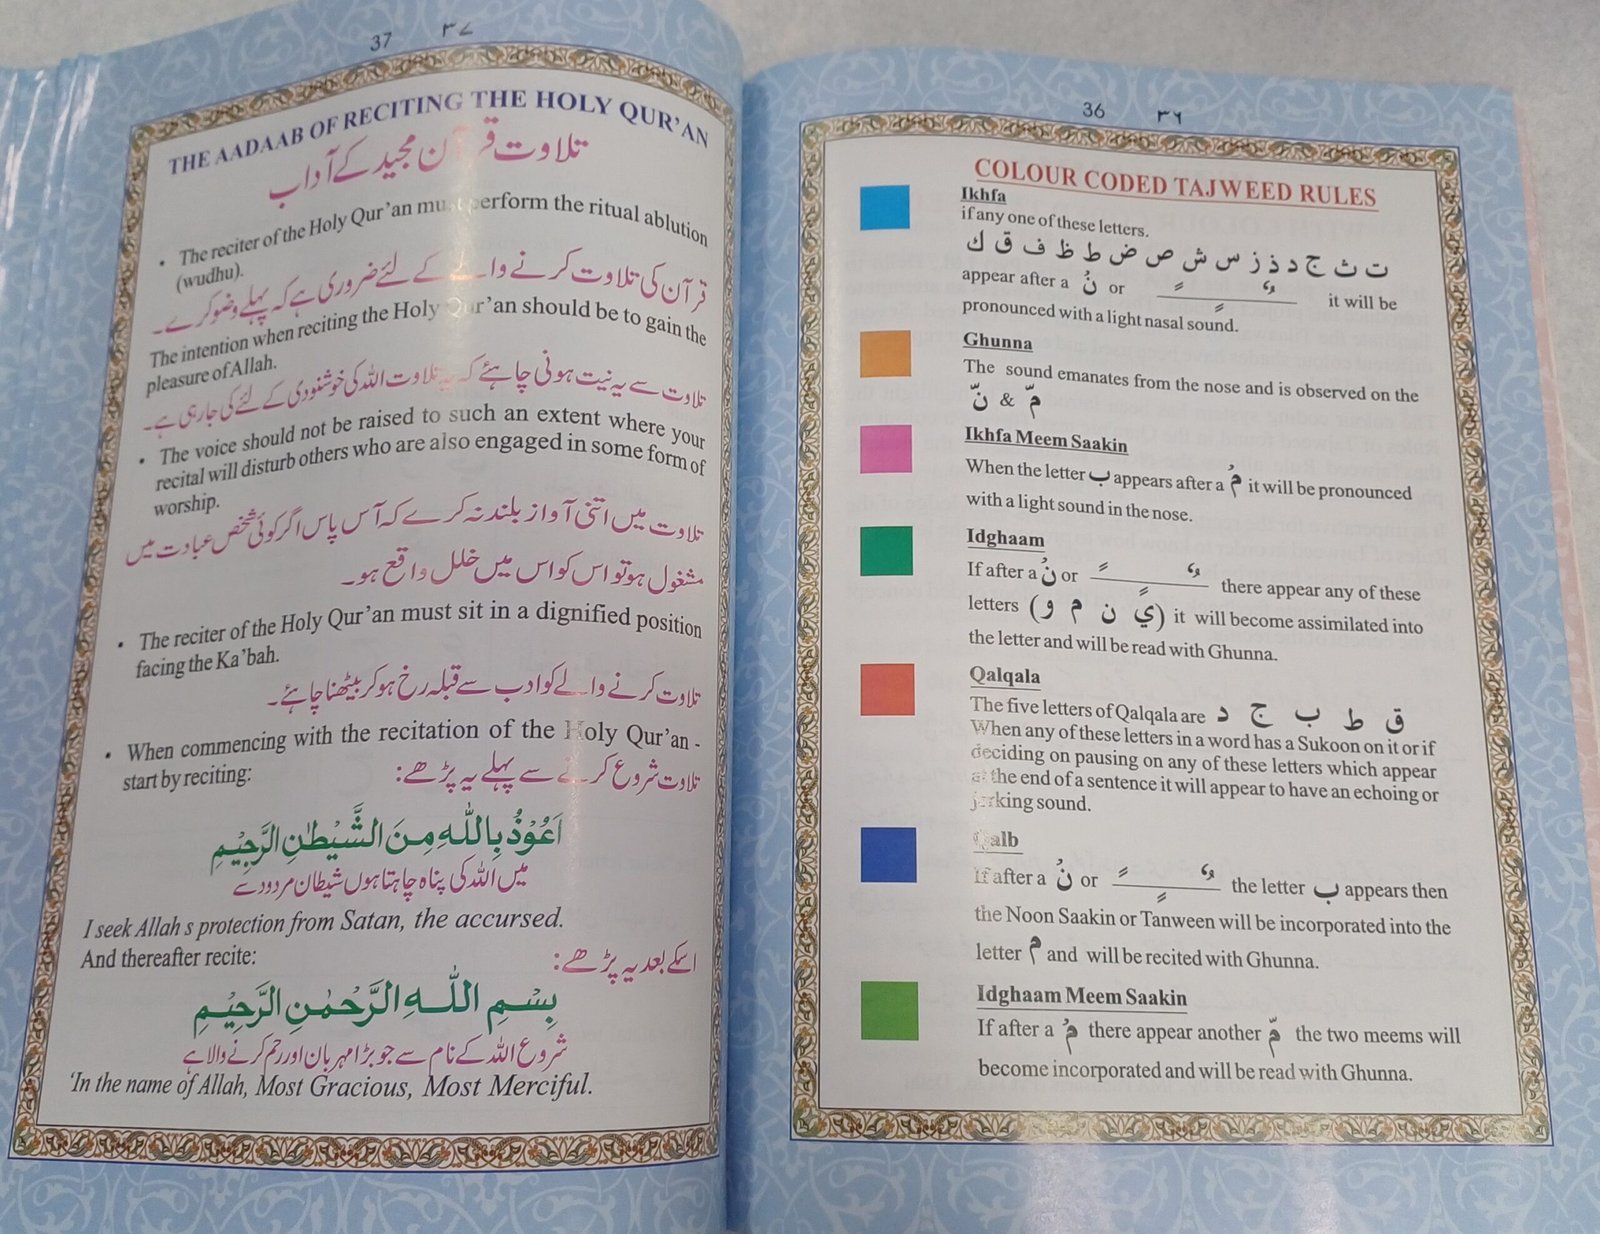 36 ٣٦
COLOUR CODED TAJWEED RULES
Ikhfa
if any one of these letters.
ت ث ج د ذ ز س ش ص ض ط ظ ف ق ك
appear after a نْ or ً ٌ ٍ it will be
pronounced with a light nasal sound.
Ghunna
The sound emanates from the nose and is observed on the
نّ & مّ
Ikhfa Meem Saakin
When the letter ب appears after a مْ it will be pronounced
with a light sound in the nose.
Idghaam
If after a نْ or ً ٌ ٍ there appear any of these
letters (ي ن م و) it will become assimilated into
the letter and will be read with Ghunna.
Qalqala
The five letters of Qalqala are ق ط ب ج د
When any of these letters in a word has a Sukoon on it or if
deciding on pausing on any of these letters which appear
at the end of a sentence it will appear to have an echoing or
jerking sound.
Qalb
If after a نْ or ً ٌ ٍ the letter ب appears then
the Noon Saakin or Tanween will be incorporated into the
letter م and will be recited with Ghunna.
Idghaam Meem Saakin
If after a مْ there appear another مّ the two meems will
become incorporated and will be read with Ghunna.
37 ٣٧
THE AADAAB OF RECITING THE HOLY QUR'AN
تلاوت قرآن مجید کے آداب
• The reciter of the Holy Qur'an must perform the ritual ablution
(wudhu).
قرآن کی تلاوت کرنے والے کے لئے ضروری ہے کہ پہلے وضو کرے۔
The intention when reciting the Holy Qur'an should be to gain the
pleasure of Allah.
تلاوت سے یہ نیت ہونی چاہئے کہ یہ تلاوت اللہ کی خوشنودی کے لئے کی جارہی ہے۔
• The voice should not be raised to such an extent where your
recital will disturb others who are also engaged in some form of
worship.
تلاوت میں اتنی آواز بلند نہ کرے کہ آس پاس اگر کوئی شخص عبادت میں
مشغول ہو تو اس کو اس میں خلل واقع ہو۔
• The reciter of the Holy Qur'an must sit in a dignified position
facing the Ka'bah.
تلاوت کرنے والے کو ادب سے قبلہ رخ ہو کر بیٹھنا چاہئے۔
• When commencing with the recitation of the Holy Qur'an -
start by reciting:
تلاوت شروع کرنے سے پہلے یہ پڑھے:
اَعُوْذُ بِاللّٰهِ مِنَ الشَّيْطٰنِ الرَّجِيْمِ
میں اللہ کی پناہ چاہتا ہوں شیطان مردود سے
I seek Allah s protection from Satan, the accursed.
And thereafter recite:
اسکے بعد یہ پڑھے:
بِسْمِ اللّٰهِ الرَّحْمٰنِ الرَّحِيْمِ
شروع اللہ کے نام سے جو بڑا مہربان اور رحم کرنے والا ہے
'In the name of Allah, Most Gracious, Most Merciful.